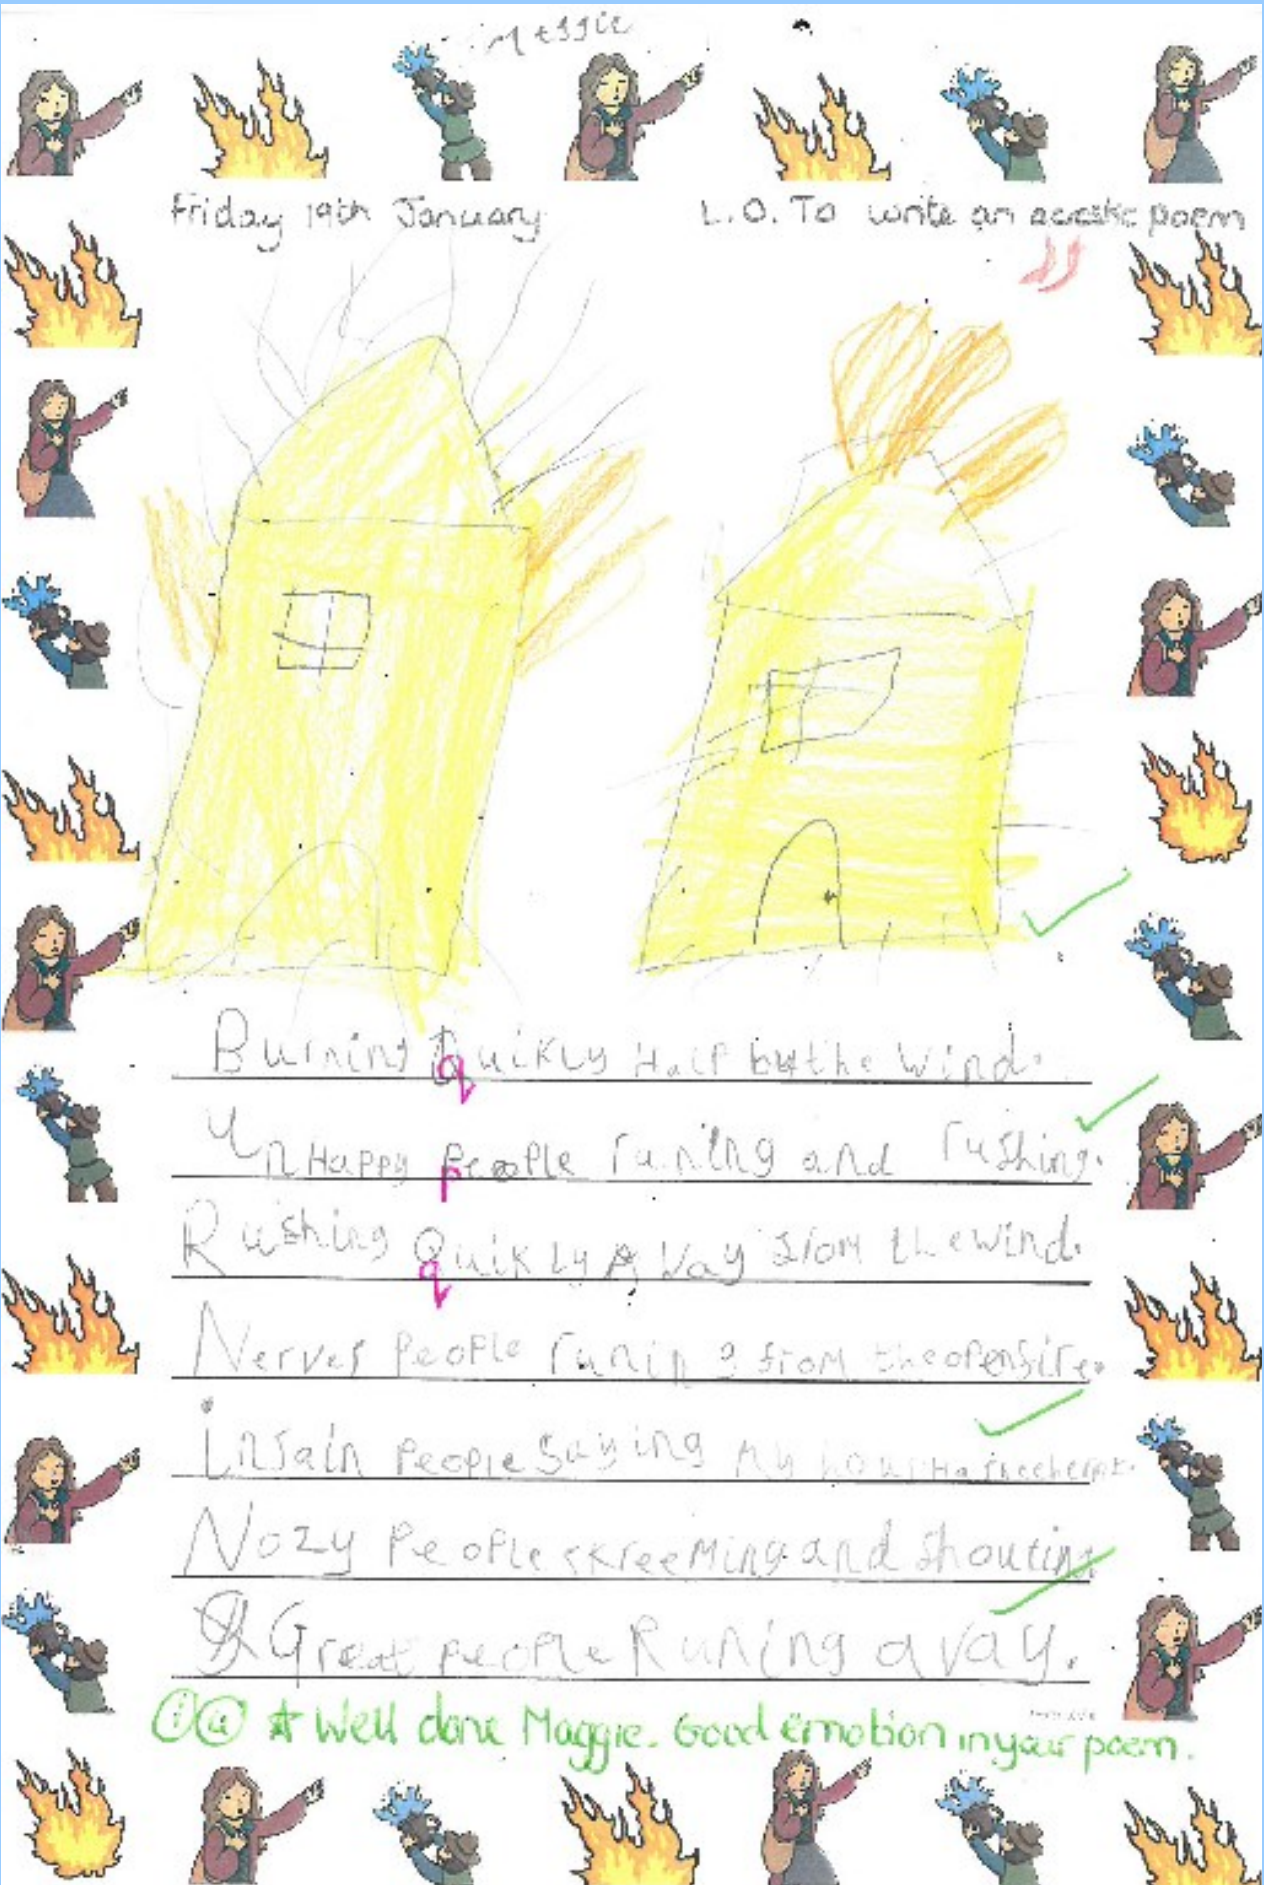 Maggie
Friday 19th January
L.O. To write an acrostic poem
Burning Quikly Half by the wind.
q
UnHappy People runing and rushing.
p
Rushing Quikly A way from the wind.
q
Nerves People runing from the open fire.
insain People Saying My hous Ha
Nozy People skreeming and shouting
Great people Runing a way.
i a ☆ Well done Maggie. Good emotion in your poem.